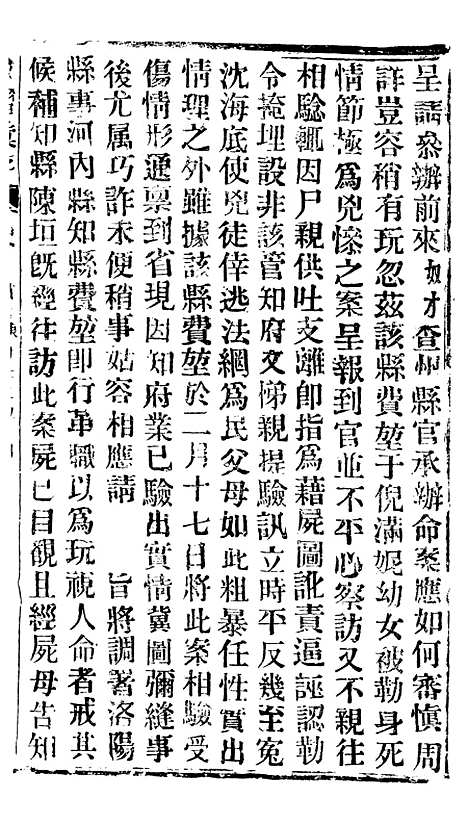 呈請叅辦前來奴才查州縣官承辦命案應如何審慎周
詳豈容稍有玩忽茲該縣費堃于倪滿妮幼女被勒身死
情節極爲兇慘之案呈報到官並不平心察訪又不親往
相驗輒因尸親供吐支離卽指爲藉屍圖訛責逼誣認勒
令掩埋設非該管知府文悌親提驗訊立時平反幾至寃
沈海底使兇徒倖逃法網爲民父母如此粗暴任性實出
情理之外雖據該縣費堃於二月十七日將此案相驗受
傷情形通禀到省現因知府業已驗出實情冀圖彌縫事
後尤属巧詐未便稍事姑容相應請 旨將調署洛陽
縣事河內縣知縣費堃卽行革職以爲玩視人命者戒其
候補知縣陳垣旣經往訪此案屍已目覩且經屍母告知